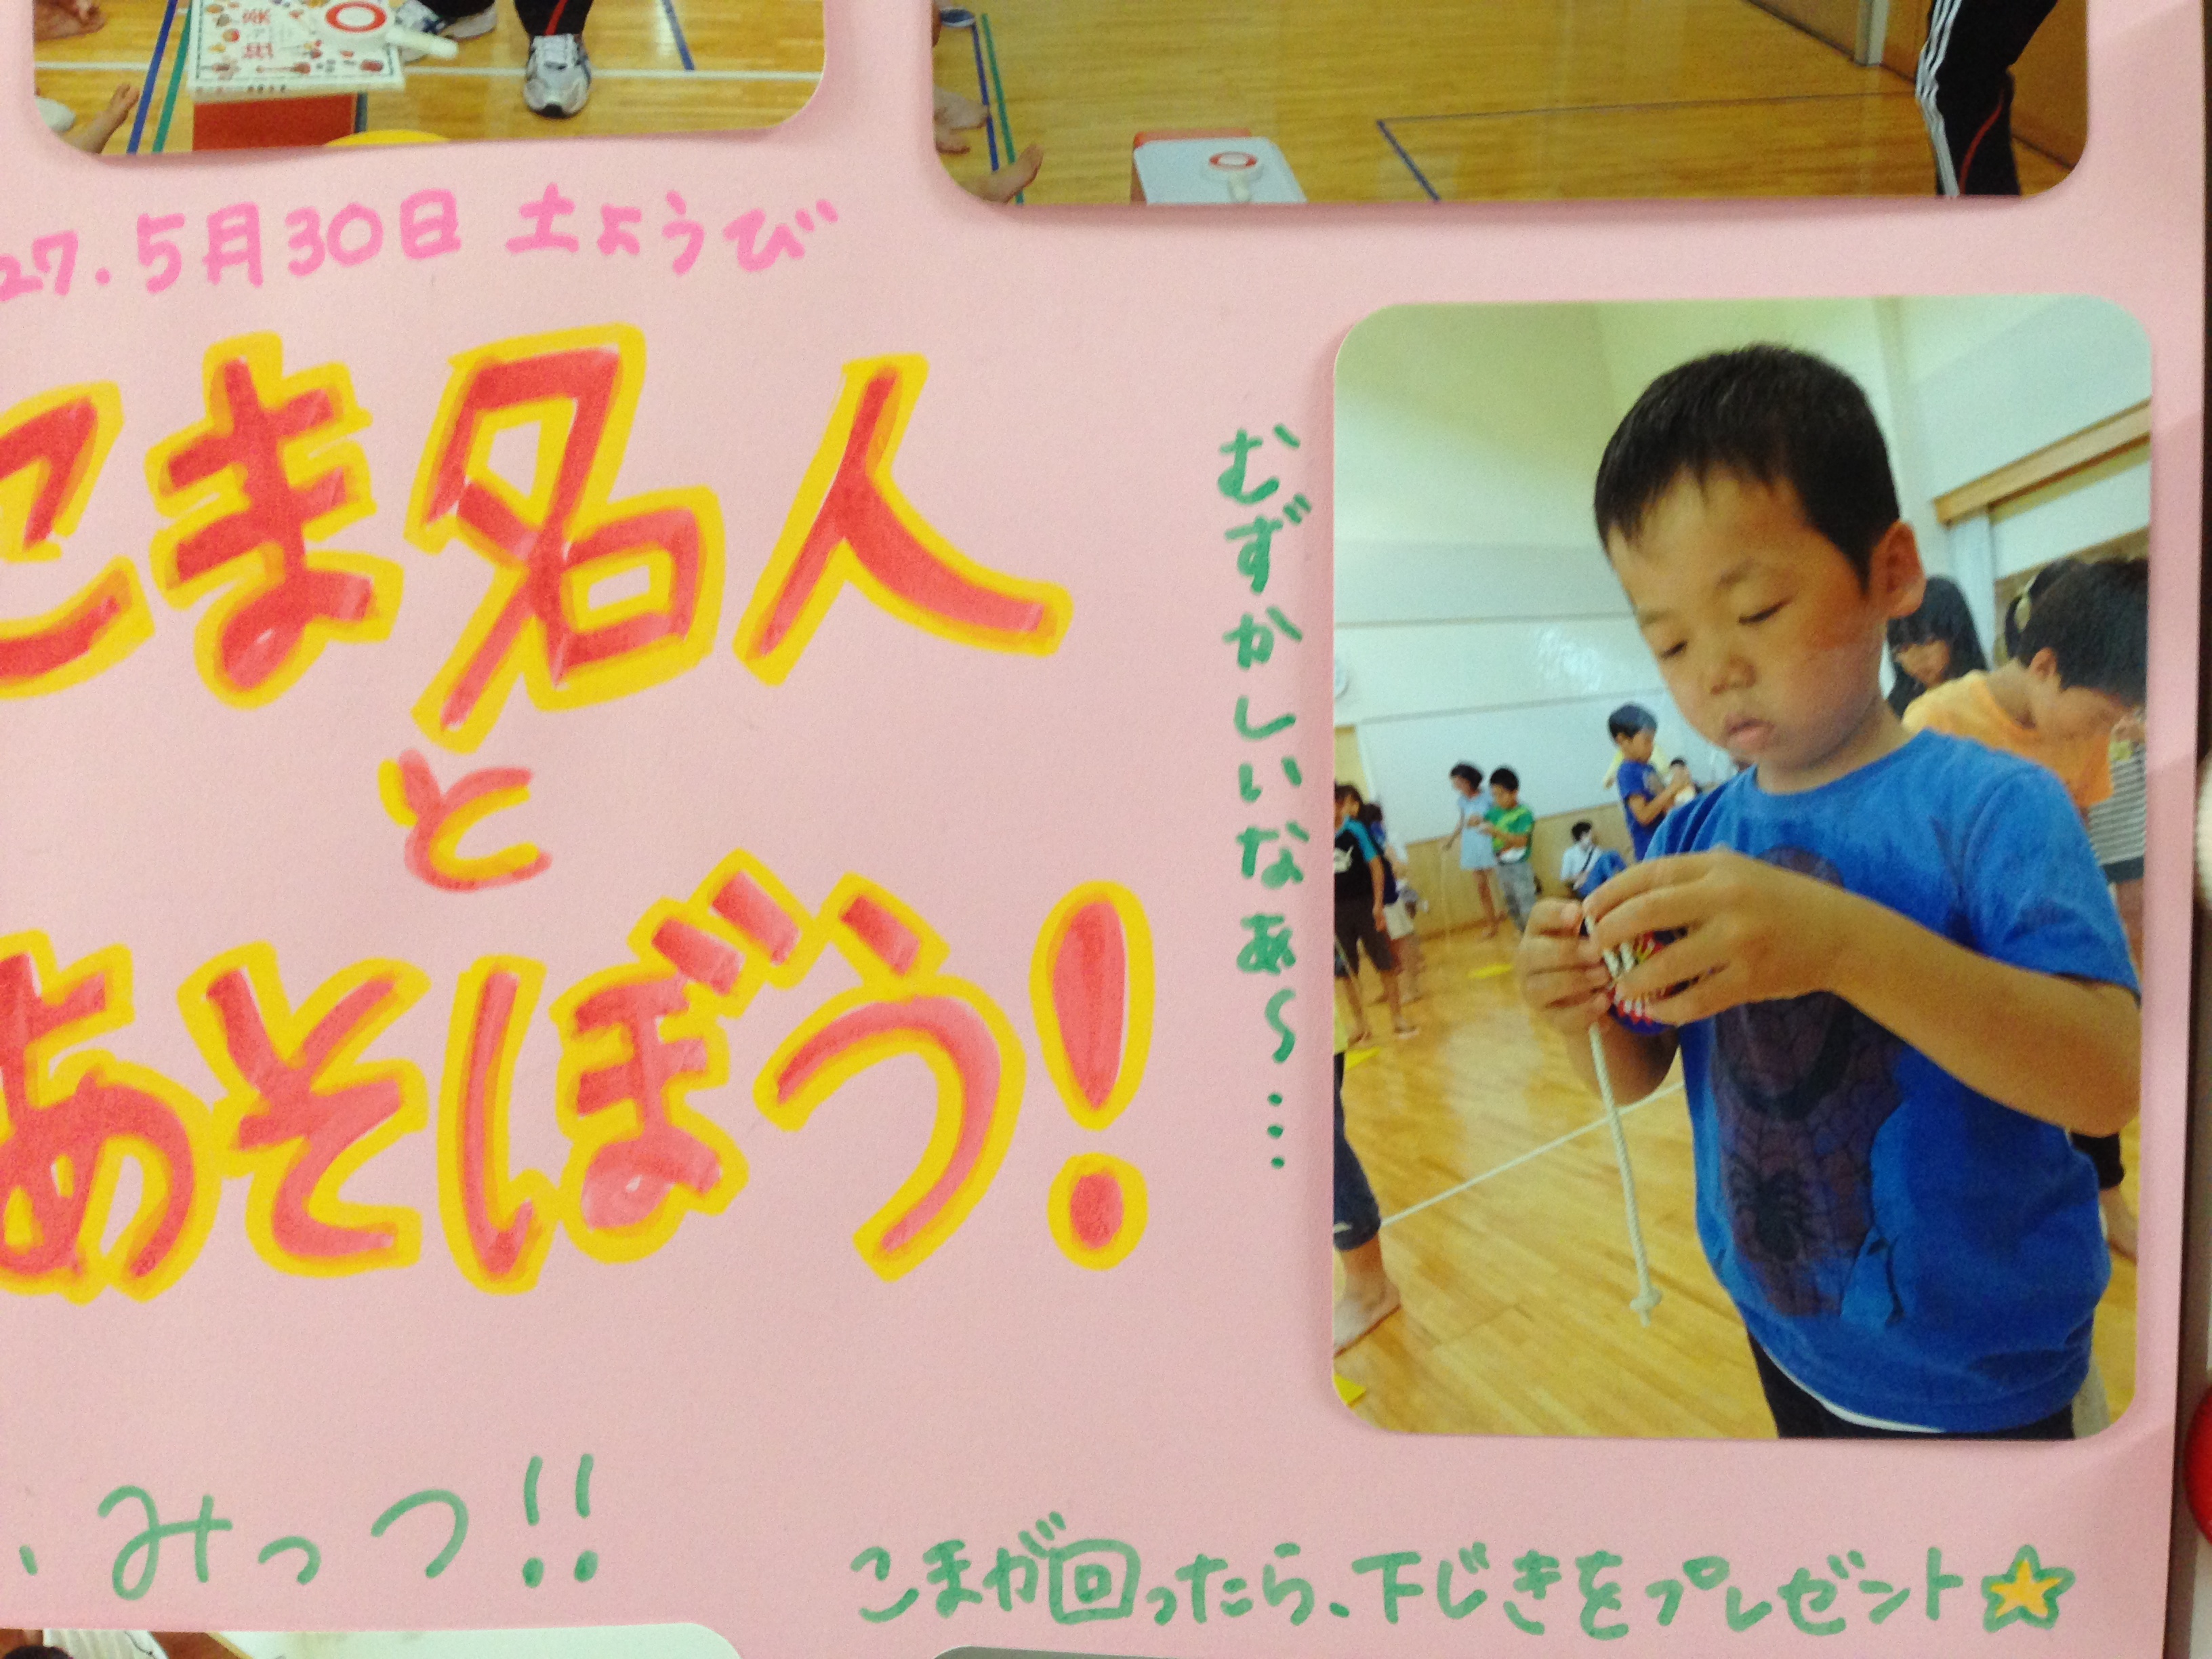 27.5月30日 土ようび
こま名人
と
あそぼう!
むずかしいなあ〜……
、みっつ!!
こまが回ったら、下じきをプレゼント☆